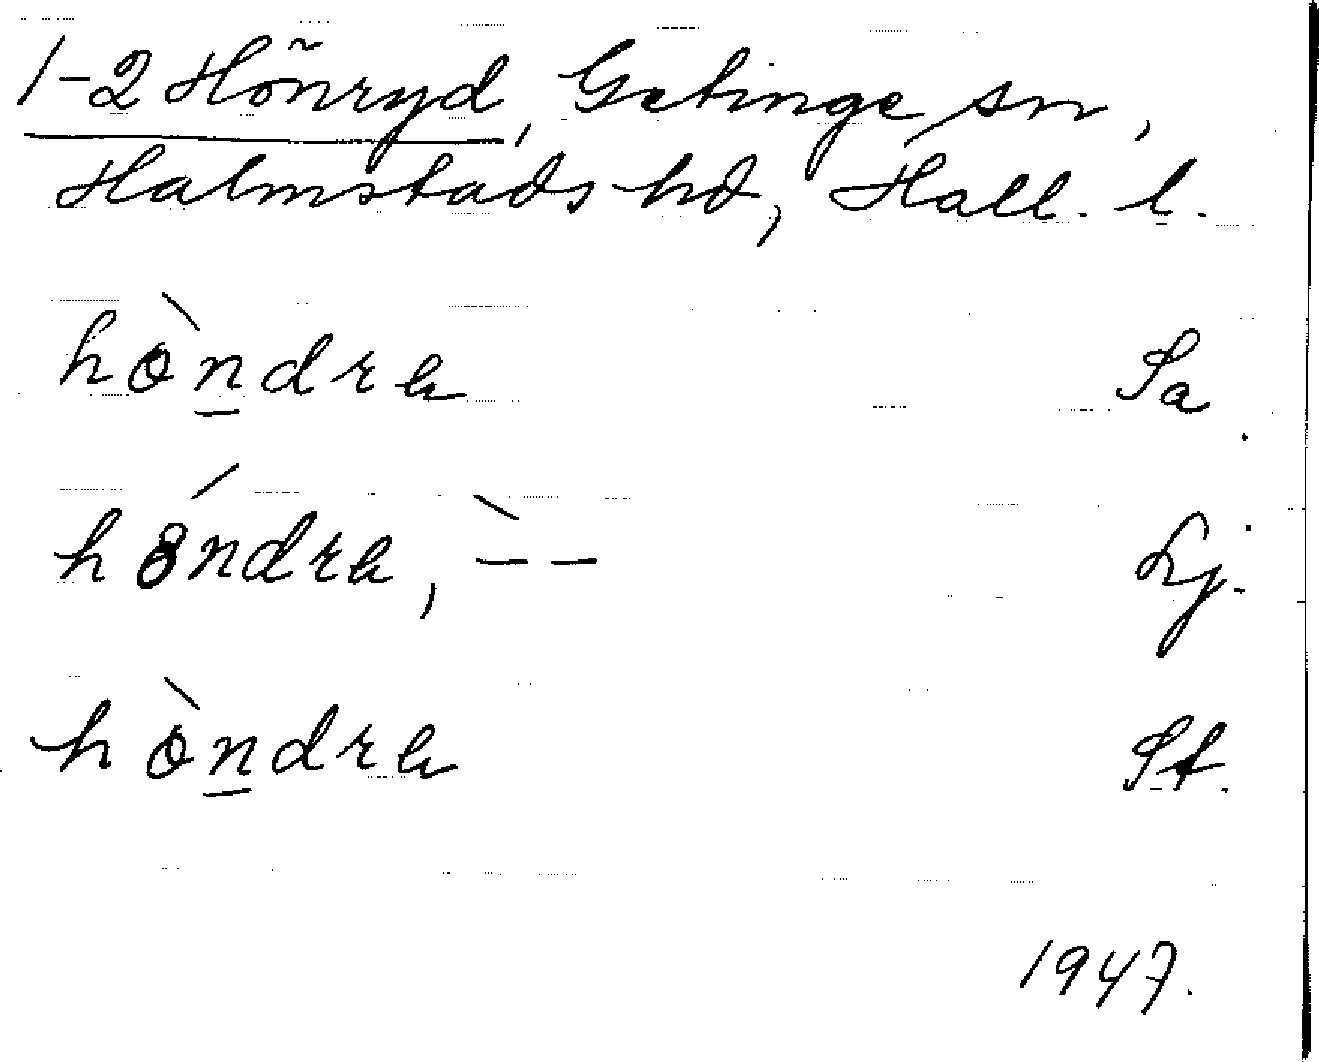 1-2 Hönryd, Getinge sn,
Halmstads hd, Hall. l.
hòndra Sa.
hóndra, `-- Lj.
hòndra St.
1947.